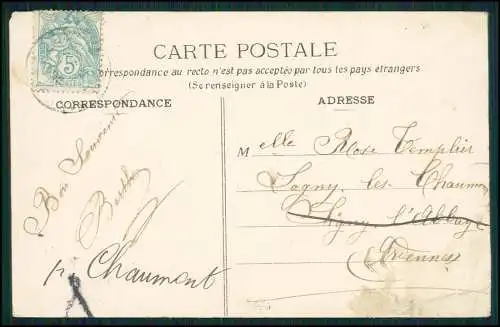 5
CARTE POSTALE
Correspondance au recto n'est pas acceptée par tous les pays étrangers
(Se renseigner à la Poste)
CORRESPONDANCE
Bon Souvenir
Berthe
pr Chaumont
ADRESSE
Melle Rose Templier
Logny les Chaumont
Signy l'Abbaye
Ardennes